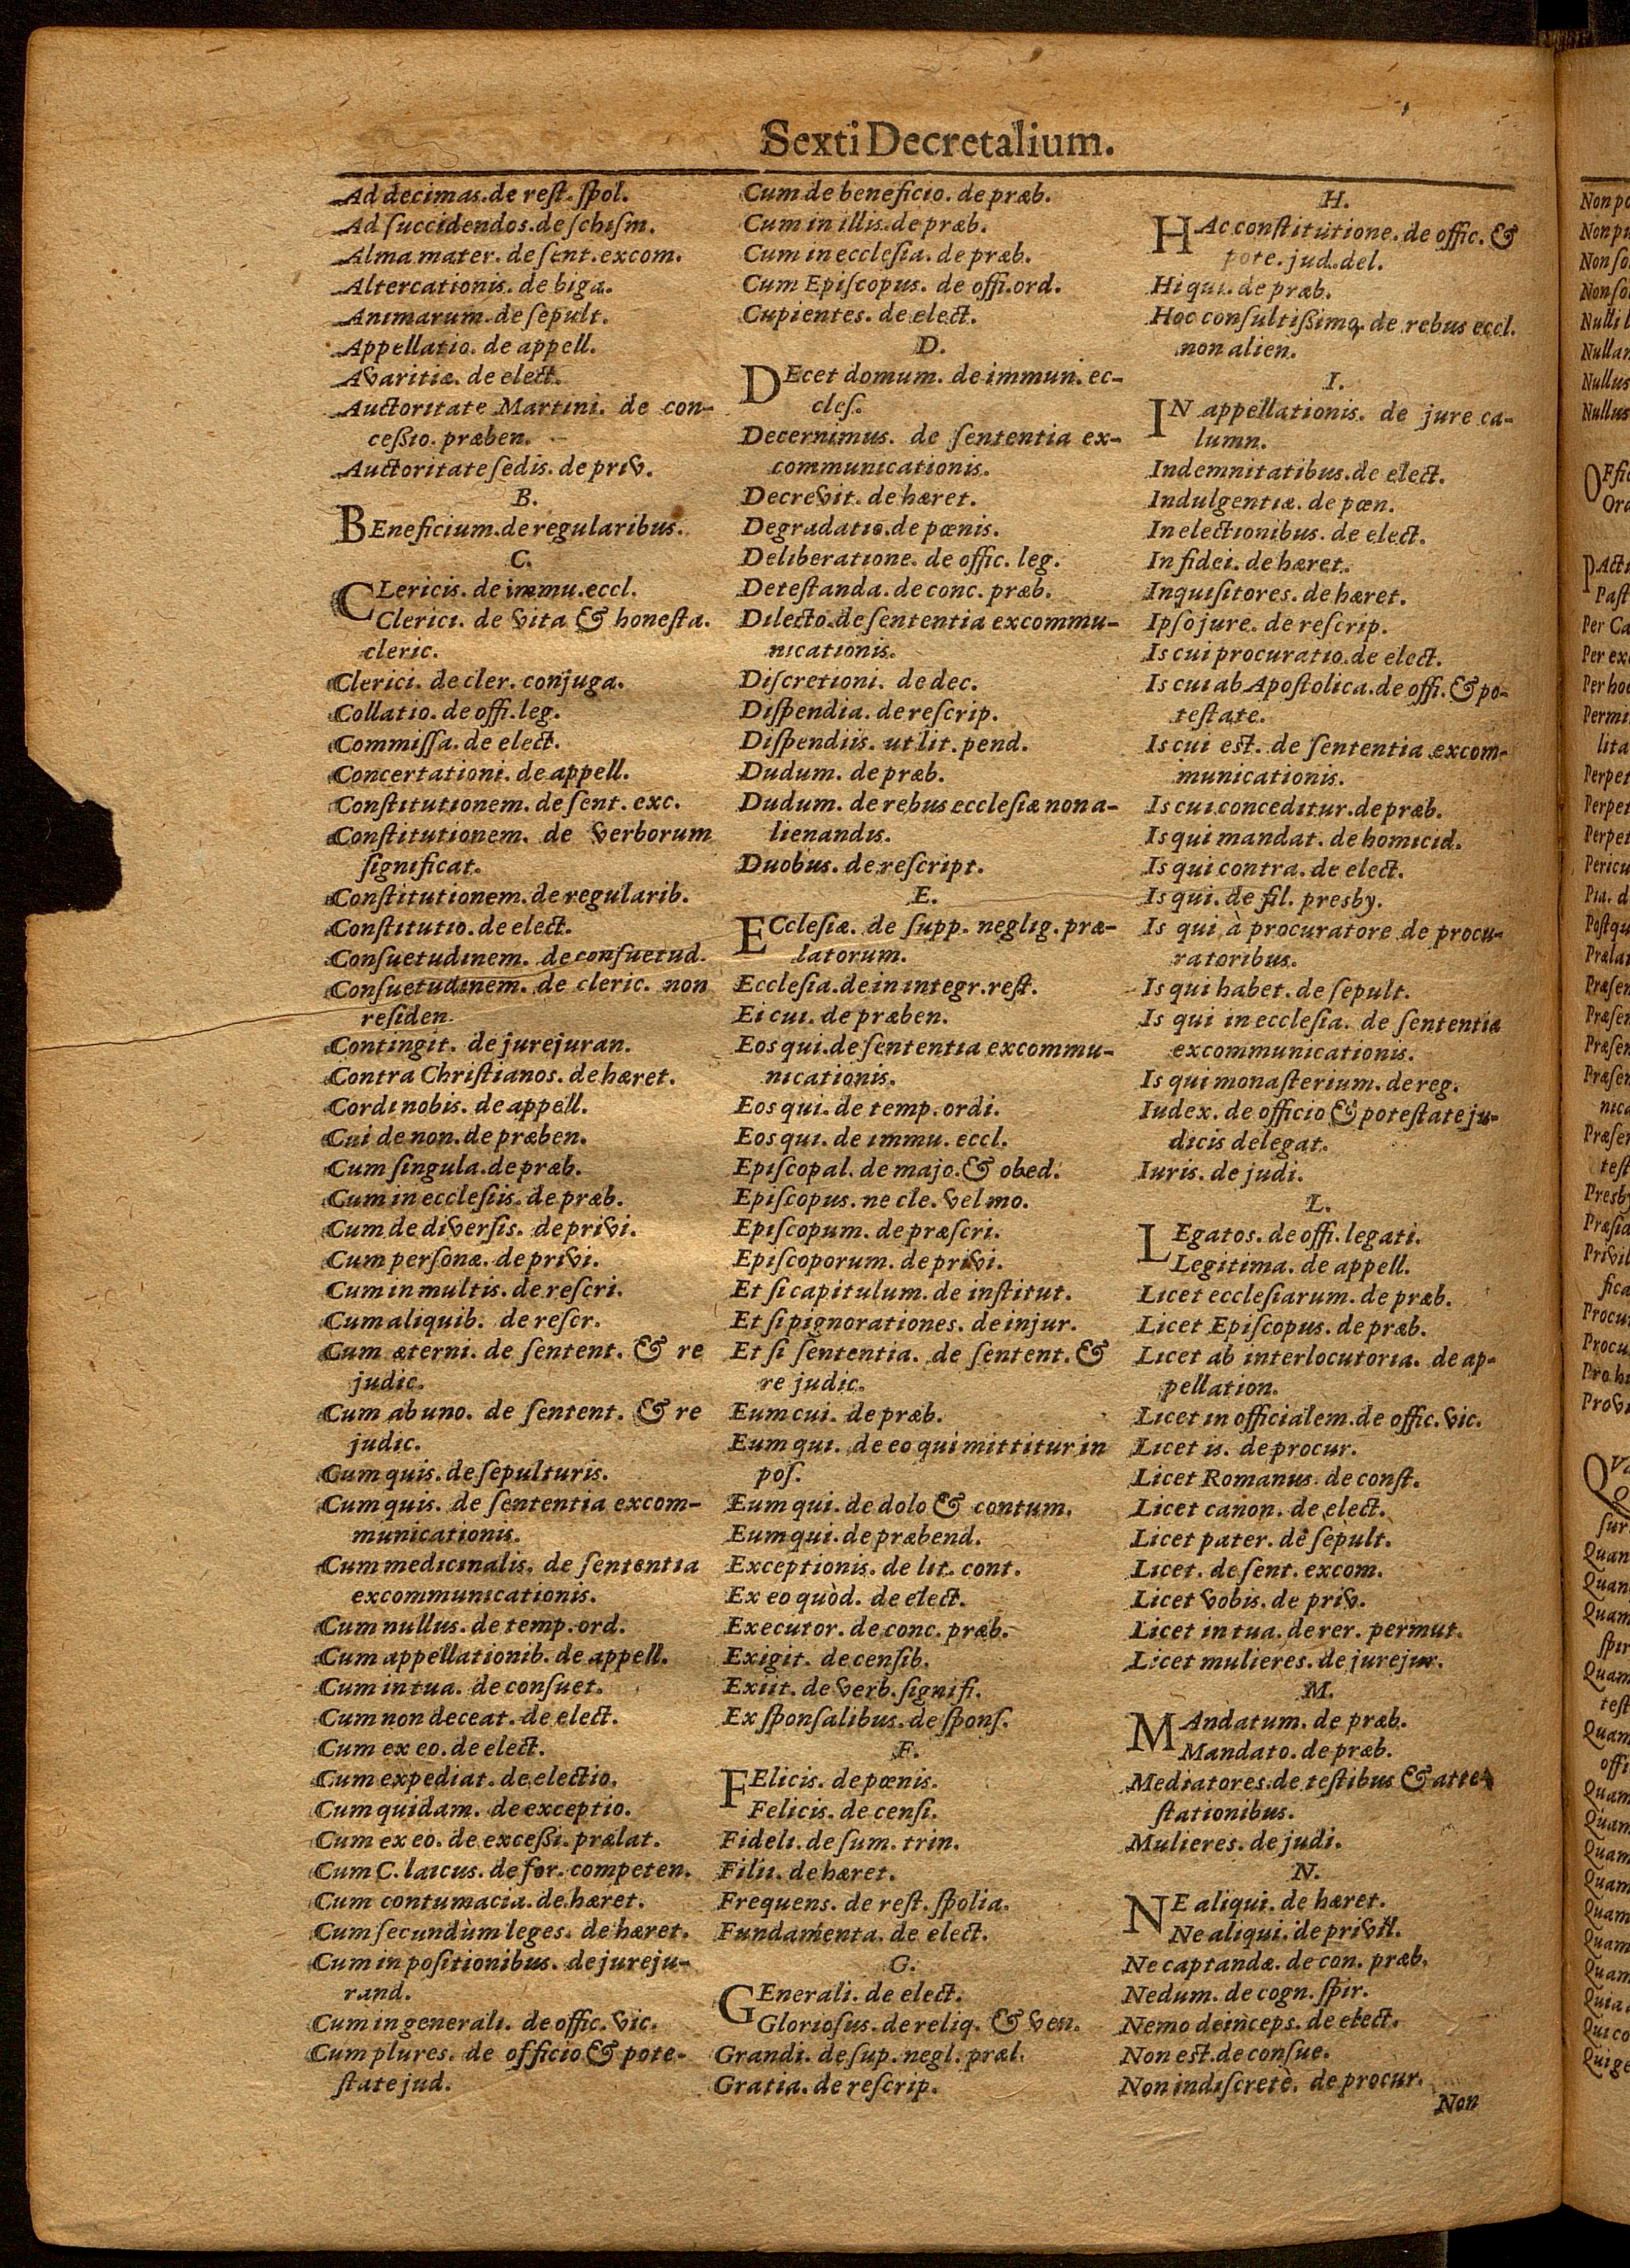 Sexti Decretalium.
Ad decimas. de reſt. ſpol.
Ad ſuccidendos. de ſchiſm.
Alma mater. de ſent. excom.
Altercationis. de biga.
Animarum. de ſepult.
Appellatio. de appell.
Avaritiæ. de elect.
Auctoritate Martini. de con-
ceßio. præben.
Auctoritate ſedis. de priv.
B.
BEneficium. de regularibus.
C.
CLericis. de immu. eccl.
Clerici. de vita & honeſta.
cleric.
Clerici. de cler. conjuga.
Collatio. de offi. leg.
Commiſſa. de elect.
Concertationi. de appell.
Conſtitutionem. de ſent. exc.
Conſtitutionem. de verborum
ſignificat.
Conſtitutionem. de regularib.
Conſtitutio. de elect.
Conſuetudinem. de conſuetud.
Conſuetudinem. de cleric. non
reſiden.
Contingit. de jurejuran.
Contra Chriſtianos. de hæret.
Cordi nobis. de appell.
Cui de non. de præben.
Cum ſingula. de præb.
Cum in eccleſiis. de præb.
Cum de diverſis. de privi.
Cum perſonæ. de privi.
Cum in multis. de reſcri.
Cum aliquib. de reſcr.
Cum æterni. de ſentent. & re
judic.
Cum ab uno. de ſentent. & re
judic.
Cum quis. de ſepulturis.
Cum quis. de ſententia excom-
municationis.
Cum medicinalis. de ſententia
excommunicationis.
Cum nullus. de temp. ord.
Cum appellationib. de appell.
Cum in tua. de conſuet.
Cum non deceat. de elect.
Cum ex eo. de elect.
Cum expediat. de electio.
Cum quidam. de exceptio.
Cum ex eo. de exceßi. prælat.
Cum C. laicus. de for. competen.
Cum contumacia. de hæret.
Cum ſecundùm leges. de hæret.
Cum in poſitionibus. de jureju-
rand.
Cum in generali. de offic. vic.
Cum plures. de officio & pote-
ſtate jud.
Cum de beneficio. de præb.
Cum in illis. de præb.
Cum in eccleſia. de præb.
Cum Epiſcopus. de offi. ord.
Cupientes. de elect.
D.
DEcet domum. de immun. ec-
cleſ.
Decernimus. de ſententia ex-
communicationis.
Decrevit. de hæret.
Degradatio. de pœnis.
Deliberatione. de offic. leg.
Deteſtanda. de conc. præb.
Dilecto. de ſententia excommu-
nicationis.
Diſcretioni. de dec.
Diſpendia. de reſcrip.
Diſpendiis. ut lit. pend.
Dudum. de præb.
Dudum. de rebus eccleſiæ non a-
lienandis.
Duobus. de reſcript.
E.
ECcleſiæ. de ſupp. neglig. præ-
latorum.
Eccleſia. de in integr. reſt.
Ei cui. de præben.
Eos qui. de ſententia excommu-
nicationis.
Eos qui. de temp. ordi.
Eos qui. de immu. eccl.
Epiſcopal. de majo. & obed.
Epiſcopus. ne cle. vel mo.
Epiſcopum. de præſcri.
Epiſcoporum. de privi.
Et ſi capitulum. de inſtitut.
Et ſi pignorationes. de injur.
Et ſi ſententia. de ſentent. &
re judic.
Eum cui. de præb.
Eum qui. de eo qui mittitur in
poſ.
Eum qui. de dolo & contum.
Eum qui. de præbend.
Exceptionis. de lit. cont.
Ex eo quòd. de elect.
Executor. de conc. præb.
Exigit. de cenſib.
Exiit. de verb. ſignifi.
Ex ſponſalibus. de ſponſ.
F.
FElicis. de pœnis.
Felicis. de cenſi.
Fideli. de ſum. trin.
Filii. de hæret.
Frequens. de reſt. ſpolia.
Fundamenta. de elect.
G.
GEnerali. de elect.
Glorioſus. de reliq. & ven.
Grandi. de ſup. negl. præl.
Gratia. de reſcrip.
H.
HAc conſtitutione. de offic. &
pote. jud. del.
Hi qui. de præb.
Hoc conſultißimo. de rebus eccl.
non alien.
I.
IN appellationis. de jure ca-
lumn.
Indemnitatibus. de elect.
Indulgentiæ. de pœn.
In electionibus. de elect.
In fidei. de hæret.
Inquiſitores. de hæret.
Ipſo jure. de reſcrip.
Is cui procuratio. de elect.
Is cui ab Apoſtolica. de offi. & po-
teſtate.
Is cui est. de ſententia excom-
municationis.
Is cui conceditur. de præb.
Is qui mandat. de homicid.
Is qui contra. de elect.
Is qui. de fil. presby.
Is qui à procuratore de procu-
ratoribus.
Is qui habet. de ſepult.
Is qui in eccleſia. de ſententia
excommunicationis.
Is qui monaſterium. de reg.
Iudex. de officio & poteſtate ju-
dicis delegat.
Iuris. de judi.
L.
LEgatos. de offi. legati.
Legitima. de appell.
Licet eccleſiarum. de præb.
Licet Epiſcopus. de præb.
Licet ab interlocutoria. de ap-
pellation.
Licet in officialem. de offic. vic.
Licet is. de procur.
Licet Romanus. de conſt.
Licet canon. de elect.
Licet pater. de ſepult.
Licet. de ſent. excom.
Licet vobis. de priv.
Licet in tua. de rer. permut.
Licet mulieres. de jurejur.
M.
MAndatum. de præb.
Mandato. de præb.
Mediatores. de teſtibus & atte-
ſtationibus.
Mulieres. de judi.
N.
NE aliqui. de hæret.
Ne aliqui. de privil.
Ne captandæ. de con. præb.
Nedum. de cogn. ſpir.
Nemo deinceps. de elect.
Non est. de conſue.
Non indiſcretè. de procur.
Non